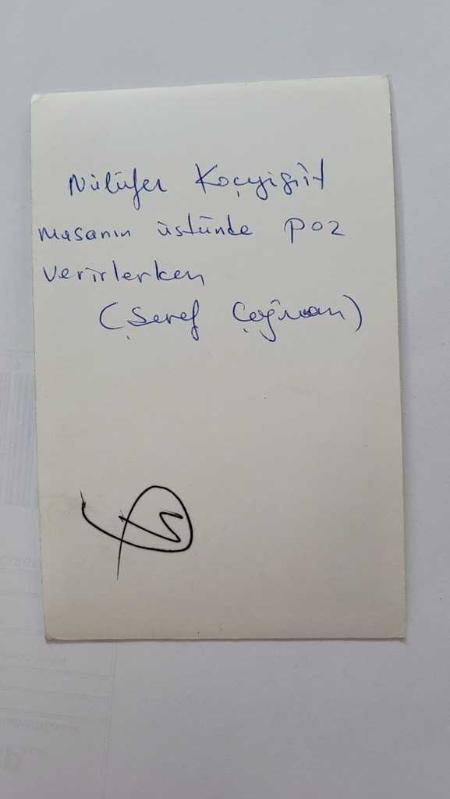 Nilüfer Koçyiğit
masanın üstünde poz
verirlerken
(Şeref Çoğman)